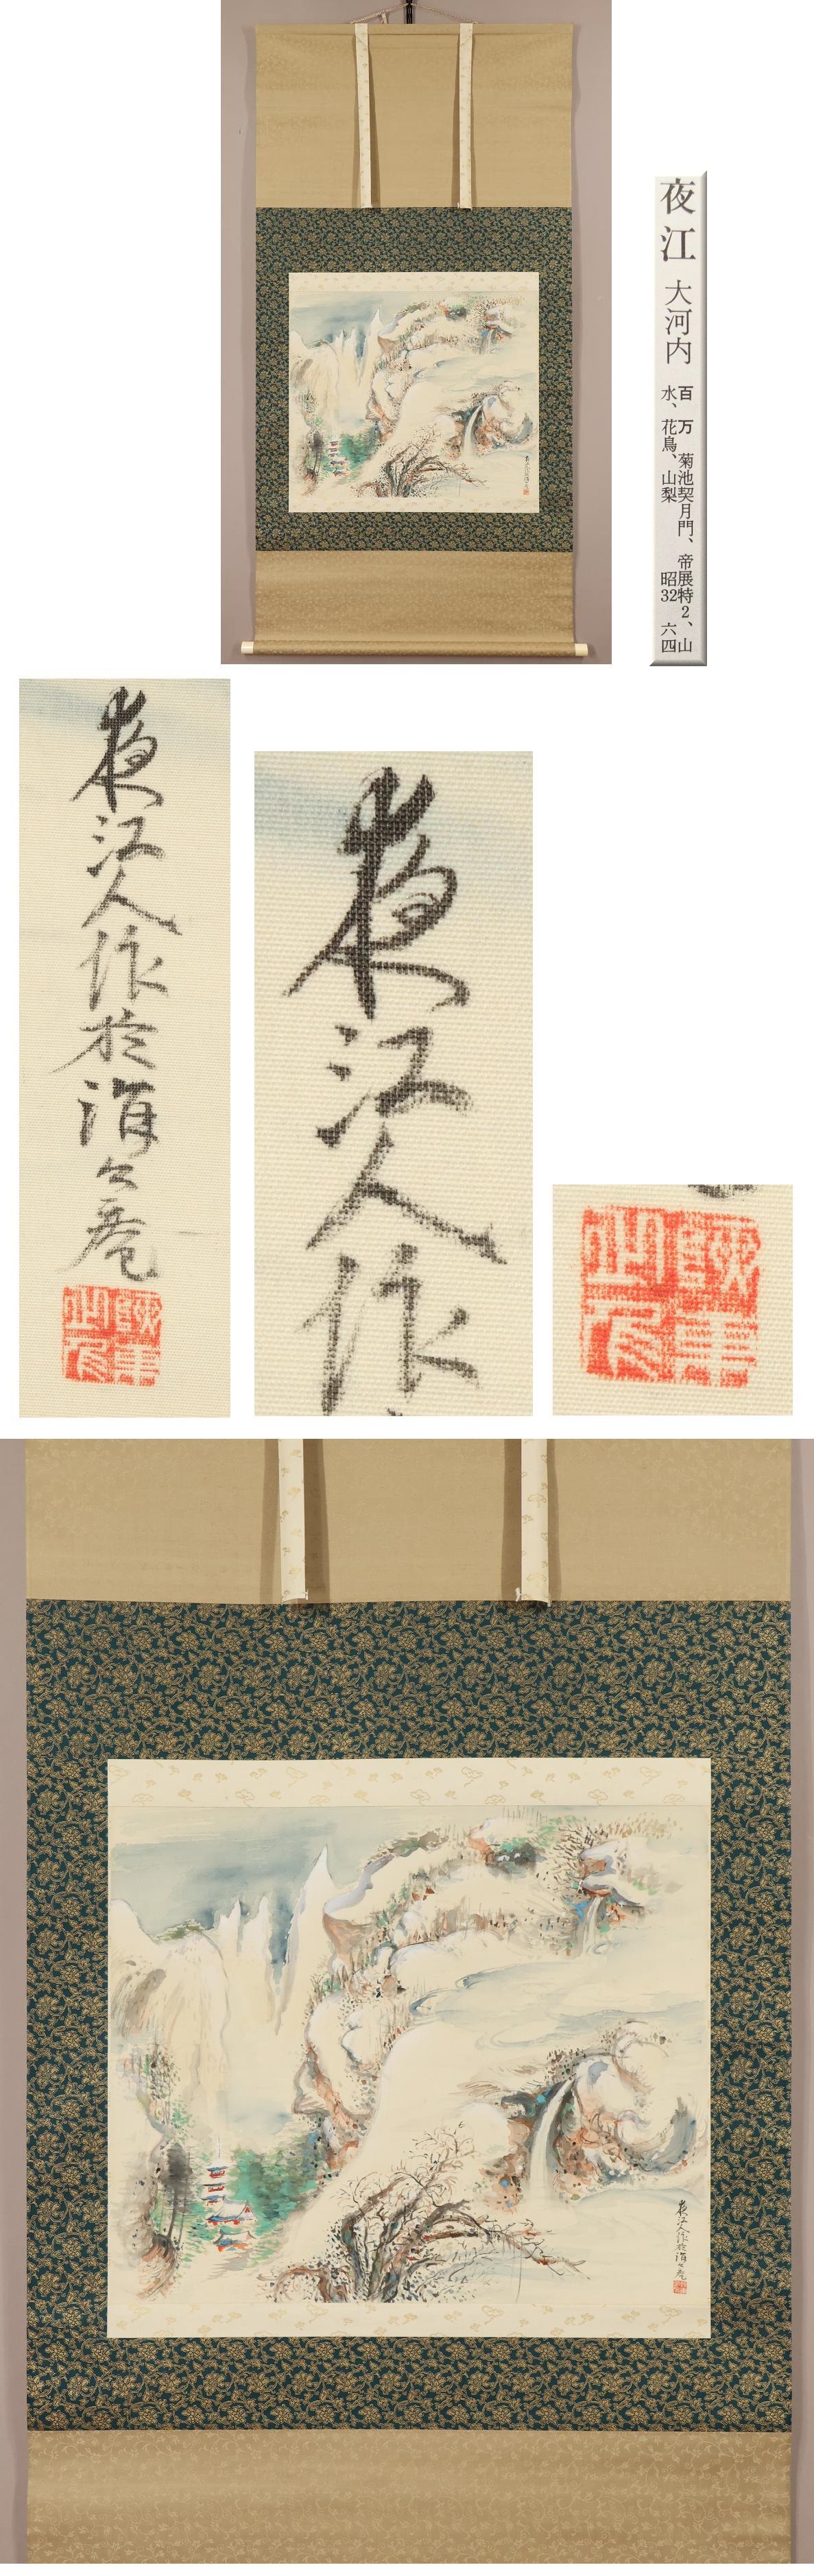 夜江 大河内
百万 菊池契月門、帝展特2、山
水、花鳥、山梨 昭32 六四
夜江人作於涓々庵
夜江人作
夜江人作於涓々庵